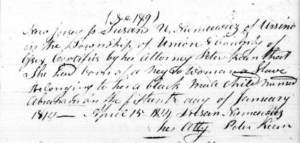 (No 189)
New Jersey ss Susan U. Niemcewicz of Ursino
in the Township of Union & County of
Essex certifies by her Attorney Peter Kean that
She had born of a Negro Woman a Slave
belonging to her a black Male Child named
Abraham on the fifteenth day of January
1814 — April 15th 1814 Susan Niemcewicz
her Atty Peter Kean